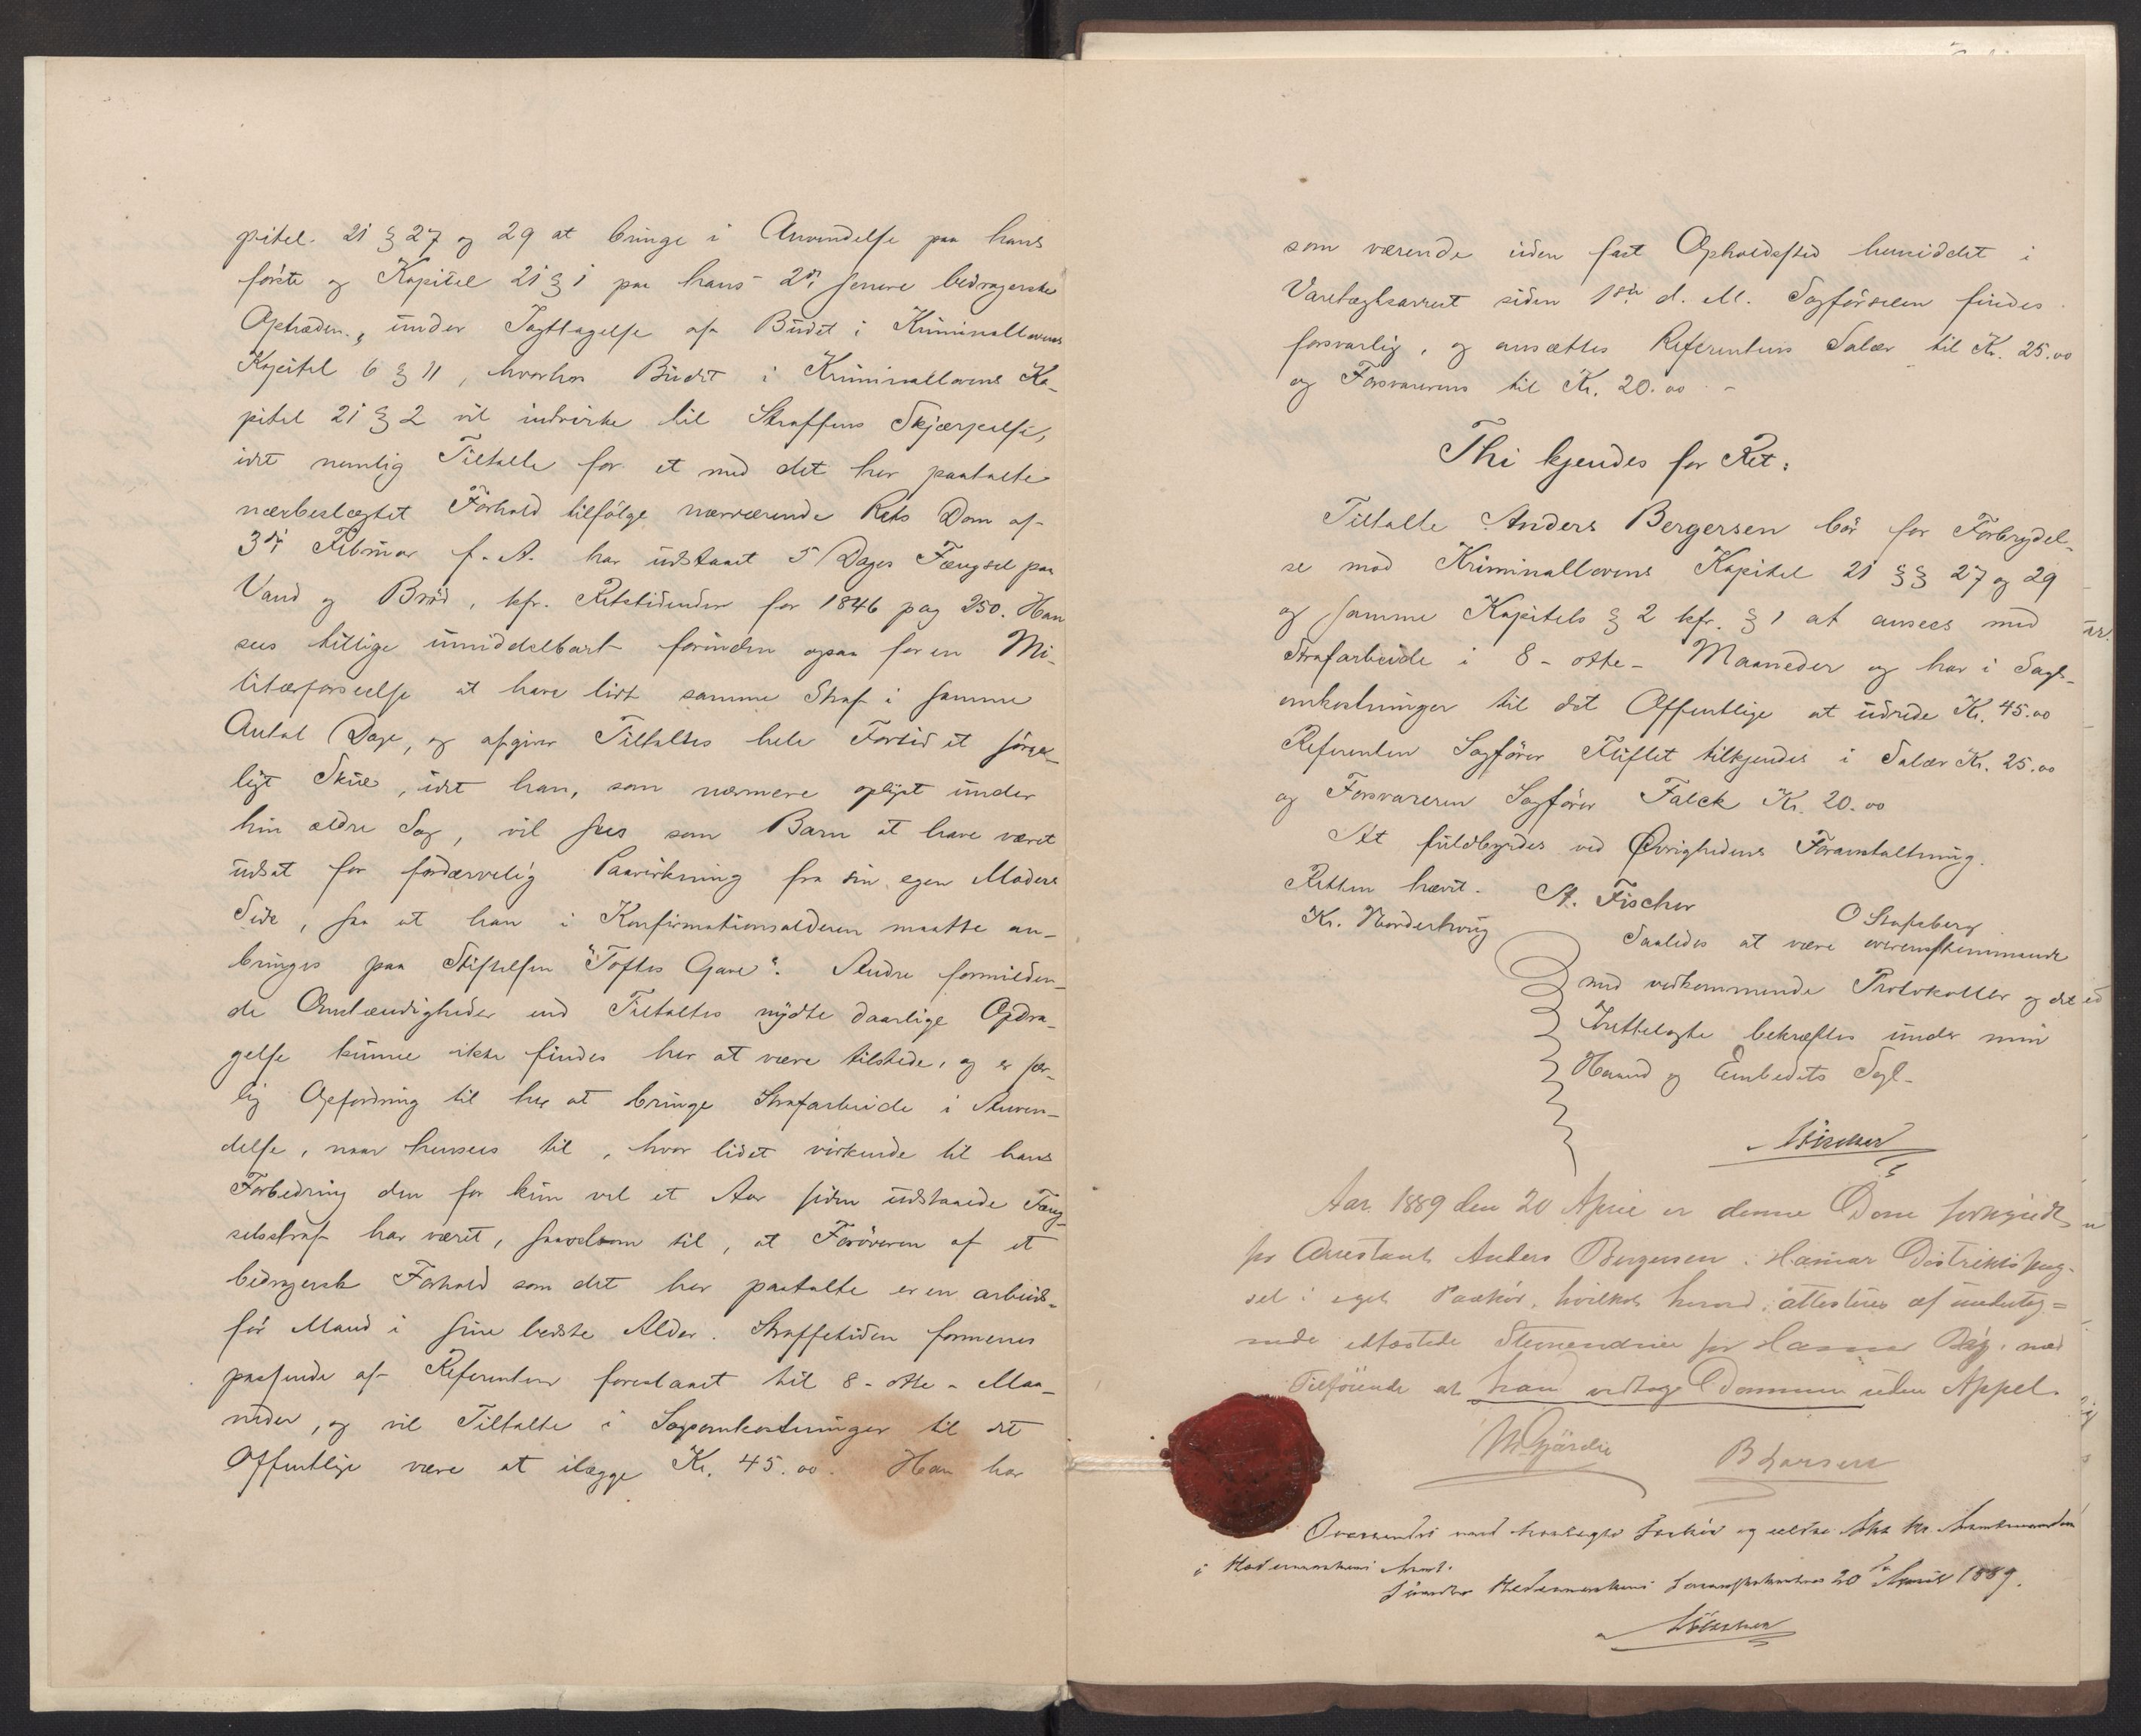 pitel. 21 § 27 og 29 at bringe i Anvendelse paa hans
første og Kapitel 21 § 1 paa hans 2de senere bedragerske
Optræden, under Iagttagelse af Budet i Kriminallovens
Kapitel 6 § 11, hvorhos Budet i Kriminallovens Ka-
pitel 21 § 2 vil indvirke til Straffens Skjærpelse,
idet nemlig Tiltalte for et med det her paatalte
nærbeslægtet Forhold tilfølge nærværende Rets Dom af
3die Februar f. A. har udstaaet 5 Dages Fængsel paa
Vand og Brød, kfr. Retstidenden for 1846 pag 250. Han
sees tillige umiddelbart forinden ogsaa for en Mi-
litærforseelse at have lidt samme Straf i samme
Antal Dage, og afgiver Tiltaltes hele Fortid et sørge-
ligt Skue, idet han, som nærmere oplyst under
hin ældre Sag, vil sees som Barn at have været
udsat for fordærvelig Paavirkning fra sin egen Moders
Side, saa at han i Konfirmationsalderen maatte an-
bringes paa Stiftelsen "Toftes Gave". Andre formilden-
de Omstændigheder end Tiltaltes nydte daarlige Opdra-
gelse kunne ikke findes her at være tilstede, og er sær-
lig Opfordring til her at bringe Strafarbeide i Anven-
delse, naar hensees til, hvor lidet virkende til hans
Forbedring den for kun vel et Aar siden udstaaede Fæng-
selsstraf har været, saavelsom til, at Forøveren af et
bedragersk Forhold som det her paatalte er en arbeids-
før Mand i sin bedste Alder. Straffetiden formenes
passende af Referenten foreslaaet til 8 - otte - Maa-
neder, og vil Tiltalte i Sagsomkostninger til det
Offentlige være at ilægge Kr. 45.00. Han har
som værende uden fast Opholdssted hensiddet i
Varetægtsarrest siden 1ste d. M. Sagførselen findes
forsvarlig, og ansættes Referentens Salær til Kr. 25.00
og Forsvarerens til Kr. 20.00 -
Thi kjendes for Ret:
Tiltalte Anders Bergersen bør for Forbrydel-
se mod Kriminallovens Kapitel 21 §§ 27 og 29
og samme Kapitels § 2 kfr. § 1 at ansees med
Strafarbeide i 8 - otte - Maaneder og har i Sags-
omkostninger til det Offentlige at udrede Kr. 45.00
Referenten Sagfører Fliflet tilkjendes i Salær Kr. 25.00
og Forsvareren Sagfører Falck Kr. 20.00
At fuldbyrdes ved Øvrighedens Foranstaltning.
Retten hævet. A. Fischer
Kr. Norderhoug O Stafsberg
Saaledes at være overensstemmende
med vedkommende Protokoller og det
Fremlagte bekræftes under min
Haand og Embedets Segl.
AFischer
Aar 1889 den 20 April er denne Dom forkyndt
for Arrestant Anders Bergersen i Hamar Distriktsfæng-
sel i eget Paahør, hvilket herved attesteres af underteg-
nede edfæstede Stevnevidner for Hamar By, med
Tilføiende at han vedtog Dommen uden Appel.
B Larsen
Oversendes med
i Hedemarkens Amt.
Hedemarkens Sorenskriverkontor 20de April 1889.
AFischer